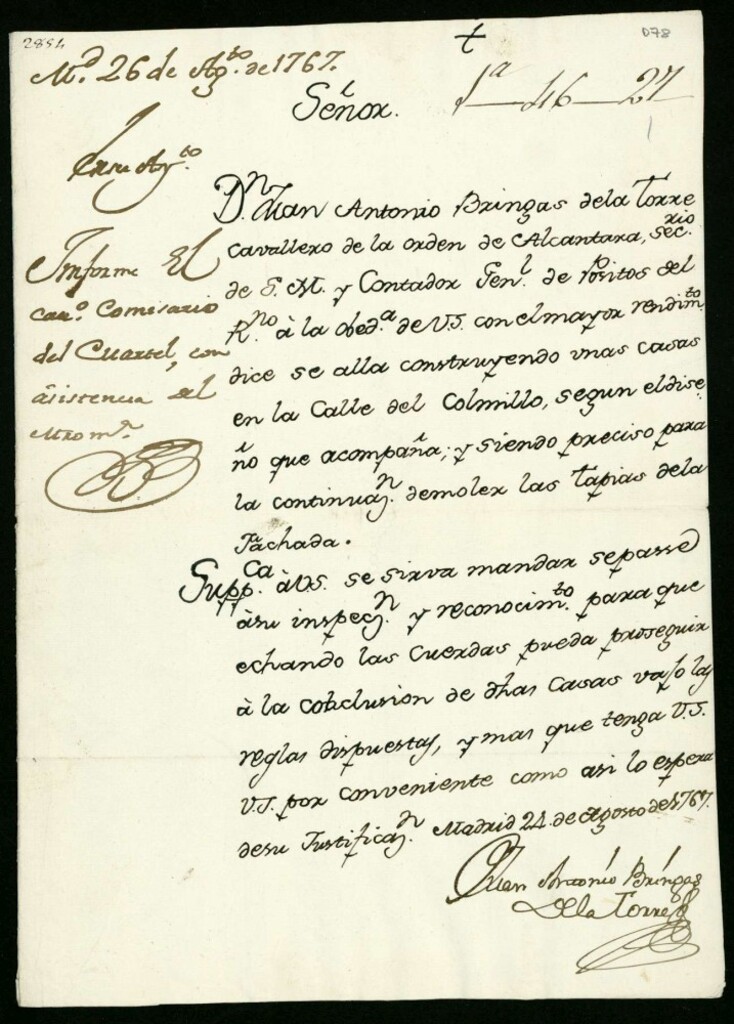 2854
D78
✝
M.d 26 de Ag.to de 1767.
1.a—46—27
1
Señor.
D.n Juan Antonio Bringas de la Torre
Cavallero de la orden de Alcantara, Sec.rio
de S. M. y Contador Gen.l de Positos del
R.no à la obed.a de V.S. con el mayor rendim.to
dice se alla construyendo unas casas
en la Calle del Colmillo, segun el dise
ño que acompaña; y siendo preciso para
la continuaz.n demoler las tapias de la
Fachada.
Supp.ca à V.S. se sirva mandar se passe
à su inspecz.n y reconocim.to para que
echando las Cuerdas pueda proseguir
à la cobclusion de dhas Casas vajo las
reglas dispuestas, y mas que tenga V.S.
V.S. por conveniente como asi lo espera
de su Justificaz.n Madrid 24 de Agosto de 1767.
Juan Antonio Bringas
De la Torre
Informe El
cav.o Comisario
del Cuartel, con
asistencia del
Mro m.r